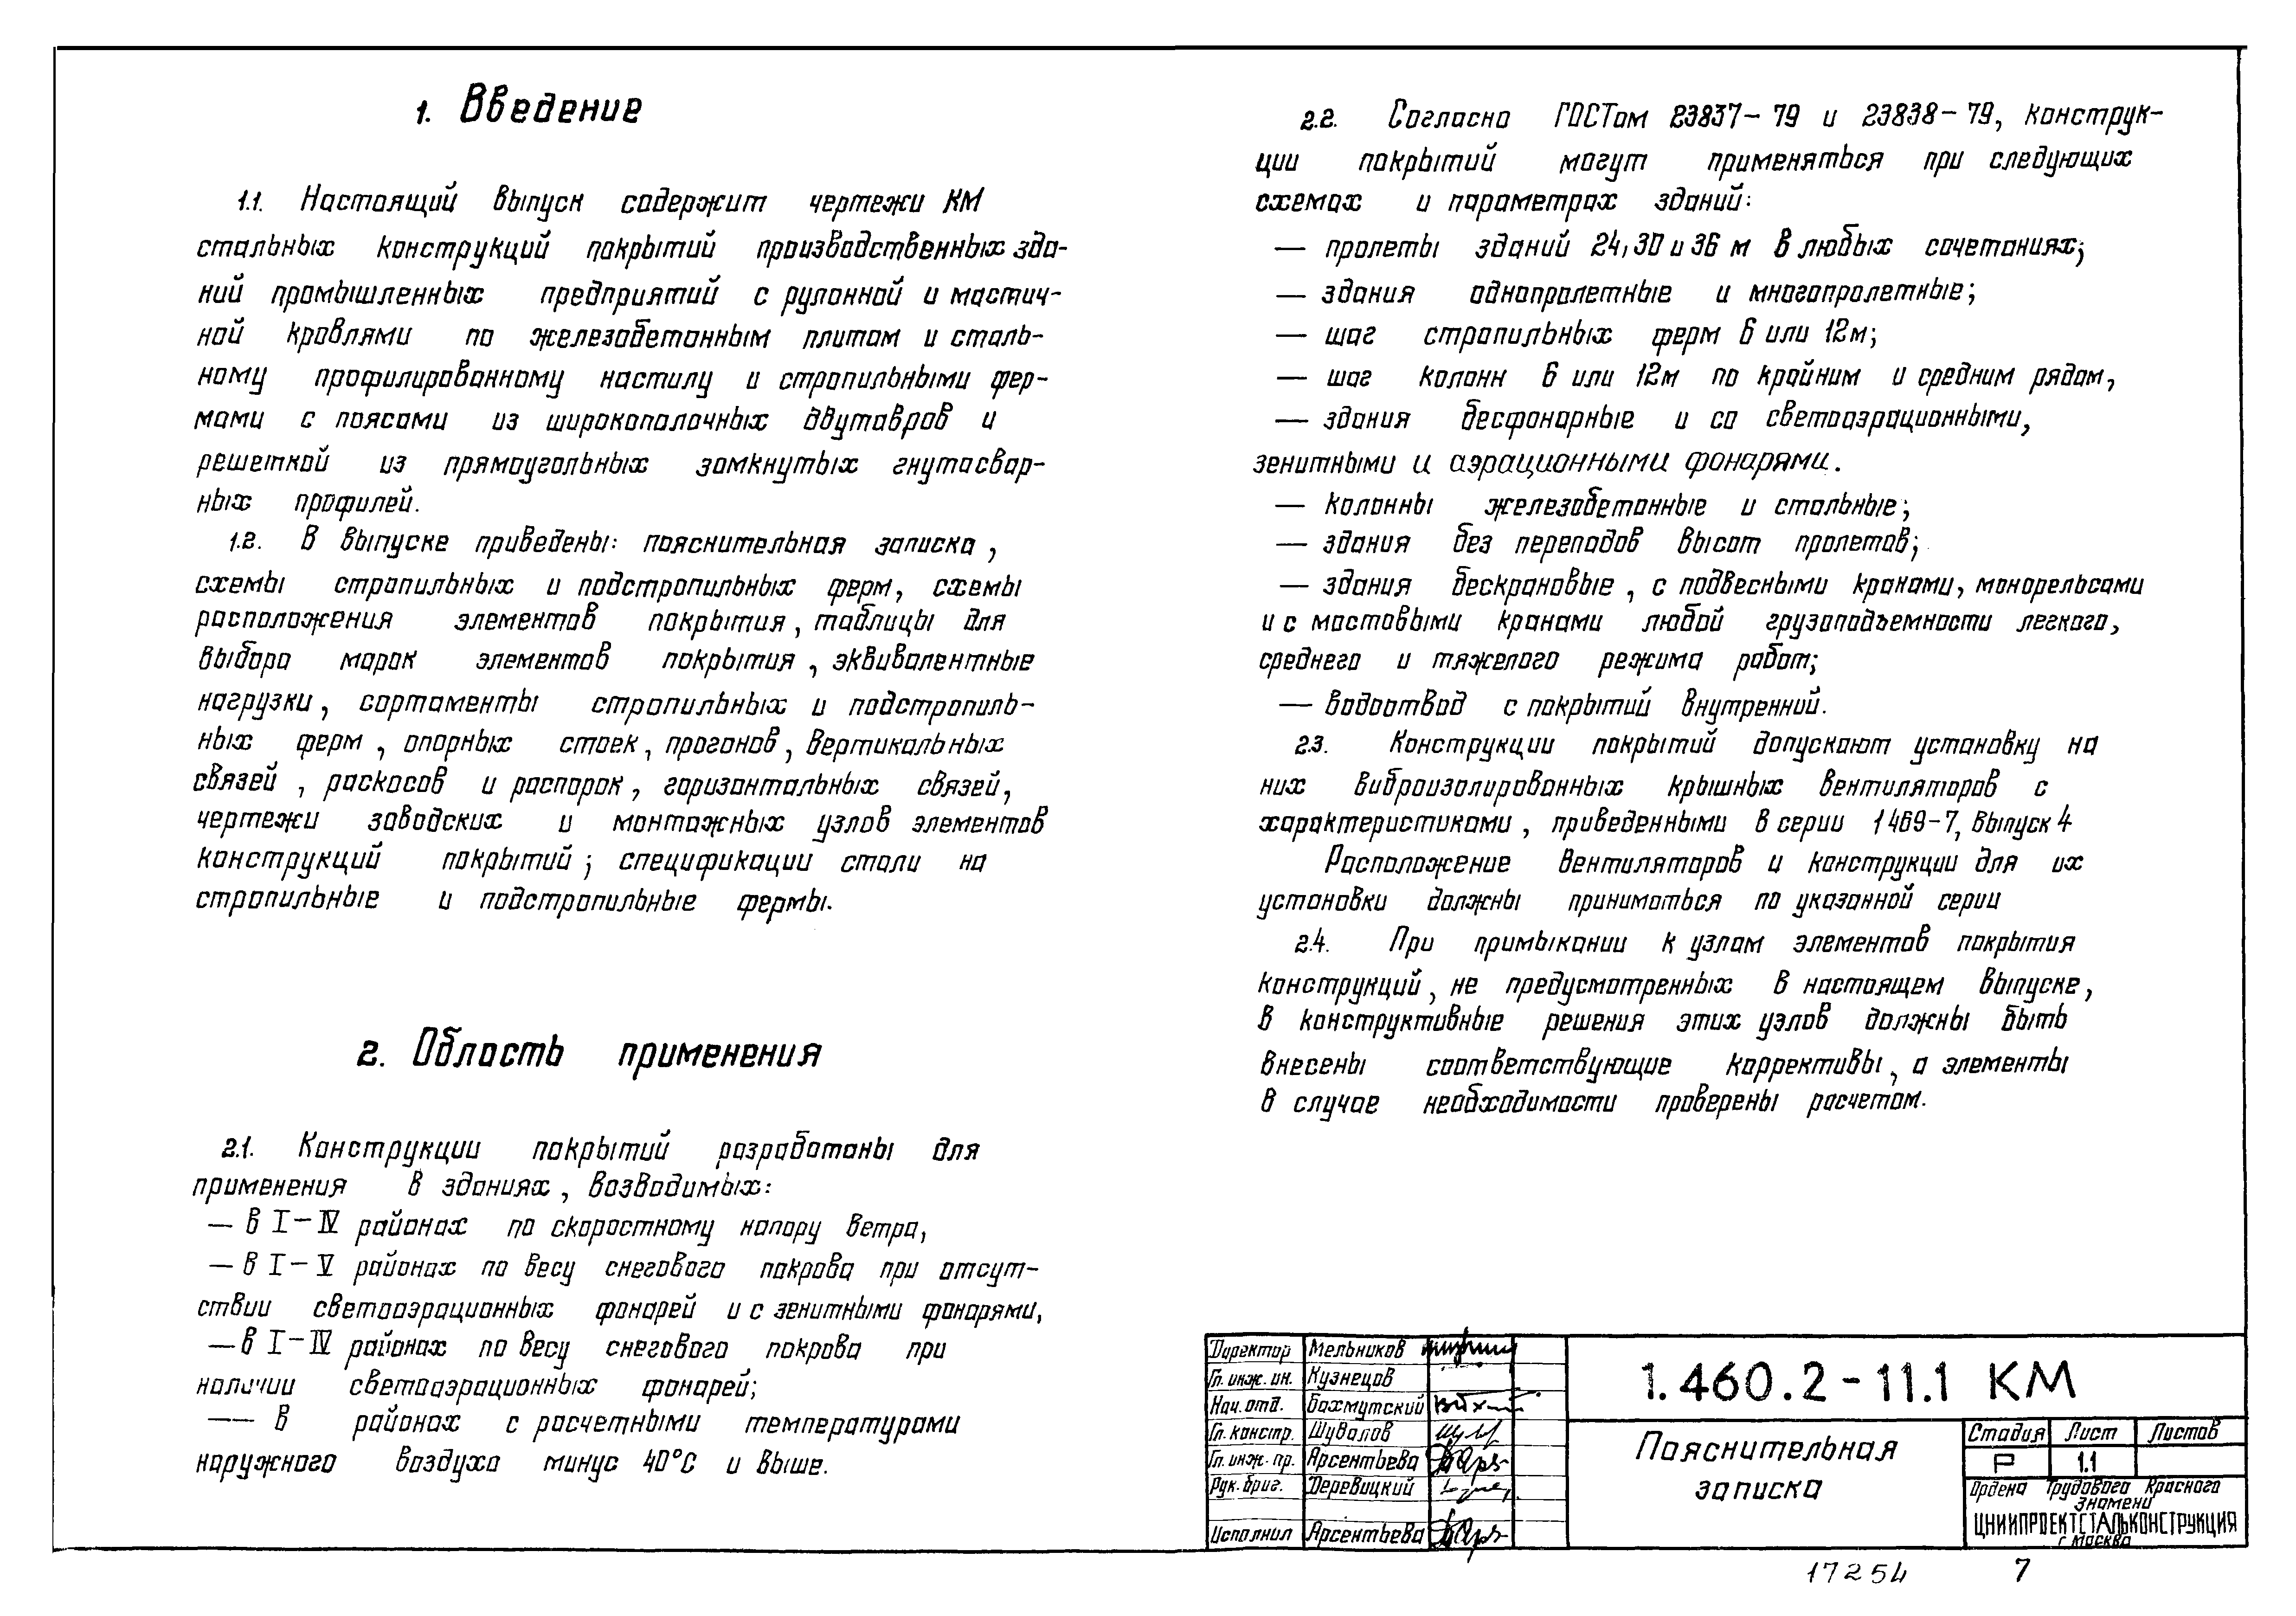 1. Введение
1.1. Настоящий выпуск содержит чертежи КМ
стальных конструкций покрытий производственных зда-
ний промышленных предприятий с рулонной и мастич-
ной кровлями по железобетонным плитам и сталь-
ному профилированному настилу и стропильными фер-
мами с поясами из широкополочных двутавров и
решеткой из прямоугольных замкнутых гнутосвар-
ных профилей.
1.2. В выпуске приведены: пояснительная записка,
схемы стропильных и подстропильных ферм, схемы
расположения элементов покрытия, таблицы для
выбора марок элементов покрытия, эквивалентные
нагрузки, сортаменты стропильных и подстропиль-
ных ферм, опорных стоек, прогонов, вертикальных
связей, раскосов и распорок, горизонтальных связей,
чертежи заводских и монтажных узлов элементов
конструкций покрытий; спецификации стали на
стропильные и подстропильные фермы.
2. Область применения
2.1. Конструкции покрытий разработаны для
применения в зданиях, возводимых:
— в I–IV районах по скоростному напору ветра,
— в I–V районах по весу снегового покрова при отсут-
ствии светоаэрационных фонарей и с зенитными фонарями,
— в I–IV районах по весу снегового покрова при
наличии светоаэрационных фонарей;
— в районах с расчетными температурами
наружного воздуха минус 40°С и выше.
2.2. Согласно ГОСТам 23837-79 и 23838-79, конструк-
ции покрытий могут применяться при следующих
схемах и параметрах зданий:
— пролеты зданий 24, 30 и 36 м в любых сочетаниях;
— здания однопролетные и многопролетные;
— шаг стропильных ферм 6 или 12м;
— шаг колонн 6 или 12м по крайним и средним рядам,
— здания бесфонарные и со светоаэрационными,
зенитными и аэрационными фонарями.
— колонны железобетонные и стальные;
— здания без перепадов высот пролетов;
— здания бескрановые, с подвесными кранами, монорельсами
и с мостовыми кранами любой грузоподъемности легкого,
среднего и тяжелого режима работ;
— водоотвод с покрытий внутренний.
2.3. Конструкции покрытий допускают установку на
них виброизолированных крышных вентиляторов с
характеристиками, приведенными в серии 1469-7, выпуск 4
Расположение вентиляторов и конструкции для их
установки должны приниматься по указанной серии
2.4. При примыкании к узлам элементов покрытия
конструкций, не предусмотренных в настоящем выпуске,
в конструктивные решения этих узлов должны быть
внесены соответствующие коррективы, а элементы
в случае необходимости проверены расчетом.
Директор Мельников
Гл. инж. ин. Кузнецов
Нач. отд. Бахмутский
Гл. констр. Шувалов
Гл. инж. пр. Арсентьева
Рук. бриг. Деревицкий
Исполнил Арсентьева
1.460.2-11.1 КМ
Пояснительная
записка
Стадия Лист Листов
Р 1.1
Ордена Трудового Красного
знамени
ЦНИИПРОЕКТСТАЛЬКОНСТРУКЦИЯ
г Москва
17254 7